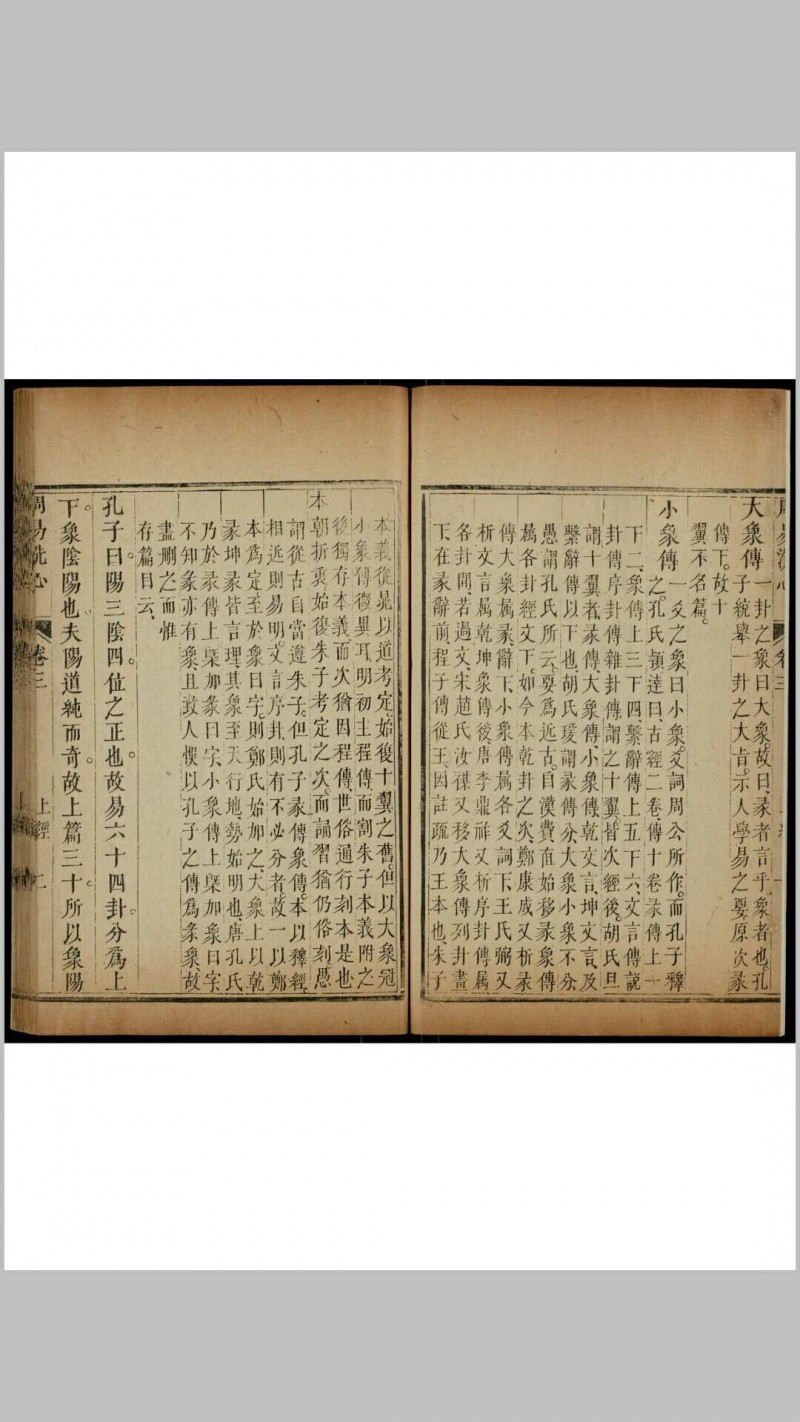 大象傳一卦之象曰大象故曰彖者言乎象者也孔
子統舉一卦之大旨示人學易之要原次彖
傳下故十
翼不名篇
小象傳一爻之象曰小象爻詞周公所作而孔子釋
之孔氏頴達曰古經二卷傳十卷彖傳上一
下二象傳上三下四繫辭傳上五下六文言傳説
卦傳序卦傳雜卦傳謂之十翼皆次經後胡氏旦
謂十翼者彖傳大象傳小象傳乾文言坤文言及
繫辭傳以下也胡氏瑗謂彖傳分大象小象不分
愚謂孔氏所云要爲近古自漢費直始移彖象傳
属各卦經文下如今本乾卦之次鄭康成又析彖
傳大象属彖辭下小象傳属各爻詞下王氏弼又
析文言属乾坤象傳後唐李鼎祚又析序卦傳属
各卦間若過文宋趙氏汝楳又移大象傳列卦畫
下在彖辭前程子傳從王因註疏乃王本也朱子
周易洗心 卷三 上經 二
本義從晁以道考定始復十翼之舊但以大象冠
小象傳微異耳明初主程傳而割朱子本義附之
後獨存本義而次猶因程傳世俗通行刻本是也
本朝折衷始復朱子考定之次而誦習猶仍俗刻愚
謂從古自當遵朱子但孔子彖傳象傳本以釋經
相近則易明文言序卦則有不必分者故一以鄭
本爲定至於象曰字則鄭氏始加之大象上以乾
彖坤彖皆言理其象至天行地勢始明也唐孔氏
乃於彖傳上槩加彖曰字小象傳上槩加象曰字
不知彖亦有象且致人悞以孔子之傳爲彖象故
盡刪之而惟
存篇目云
孔子曰陽三陰四位之正也故易六十四卦分爲上
下象陰陽也夫陽道純而奇故上篇三十所以象陽